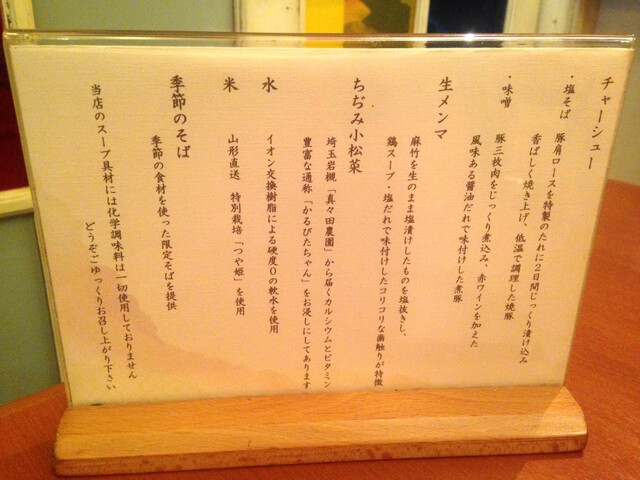 チャーシュー
・塩そば 豚肩ロースを特製のたれに2日間じっくり漬け込み
香ばしく焼き上げ、低温で調理した焼豚
・味噌 豚三枚肉をじっくり煮込み、赤ワインを加えた
風味ある醤油だれで味付けした煮豚
生メンマ
麻竹を生のまま塩漬けしたものを塩抜きし、
鶏スープ・塩だれで味付けしたコリコリな歯触りが特徴
ちぢみ小松菜
埼玉岩槻「真々田農園」から届くカルシウムとビタミン
豊富な通称「かるびたちゃん」をお浸しにしてあります
水 イオン交換樹脂による硬度0の軟水を使用
米 山形直送 特別栽培「つや姫」を使用
季節のそば
季節の食材を使った限定そばを提供
当店のスープ具材には化学調味料は一切使用しておりません
どうぞごゆっくりお召し上がり下さい